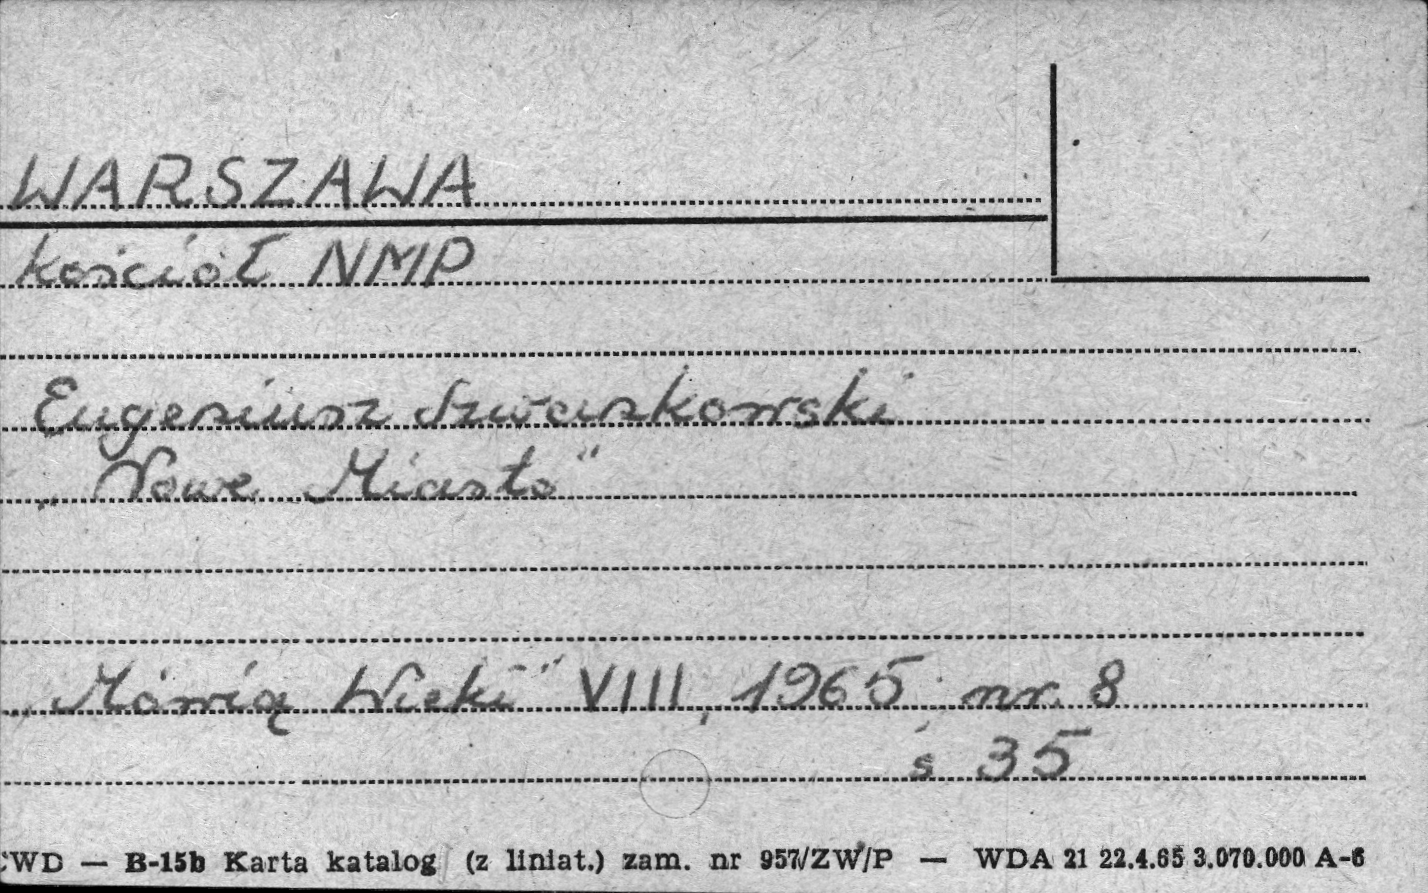 WARSZAWA
kościół NMP
Eugeniusz Szwankowski
„Nowe Miasto"
„Mówią Wieki" VIII, 1965 nr. 8
s 35
CWD — B-15b Karta katalog (z liniat.) zam. nr 957/ZW/P — WDA 21 22.4.65 3.070.000 A-6